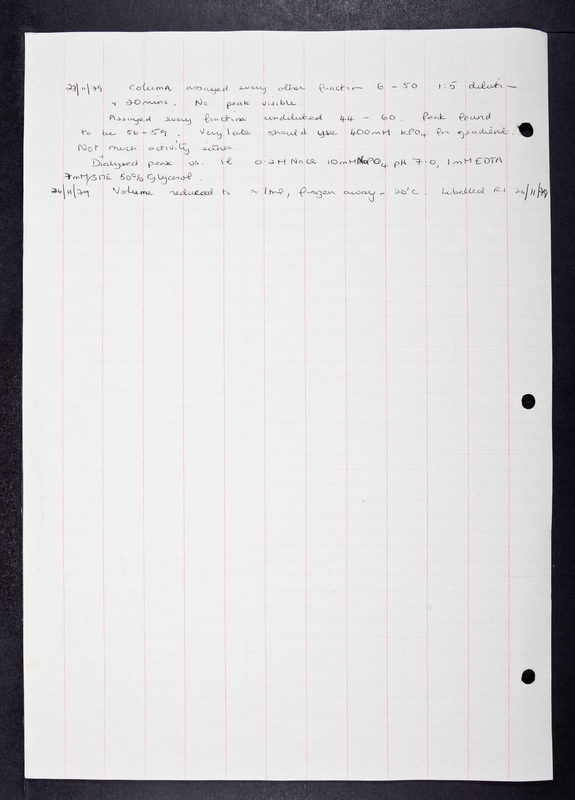 23/11/79 Column assayed every other fraction 6 - 50 1:5 diluti -
x 20mins. No peak visible
Assayed every fraction undiluted 44 - 60. Peak found
to be 56 - 59. Very late should use 400mM KPO4 for gradient.
Not much activity either.
Dialysed peak vs. 1l 0.2M NaCl 10mM PO4 pH 7.0, 1mM EDTA
7mM BME 50% Glycerol.
26/11/79 Volume reduced to ~1ml, frozen away - 20°C. Labelled R1 26/11/79